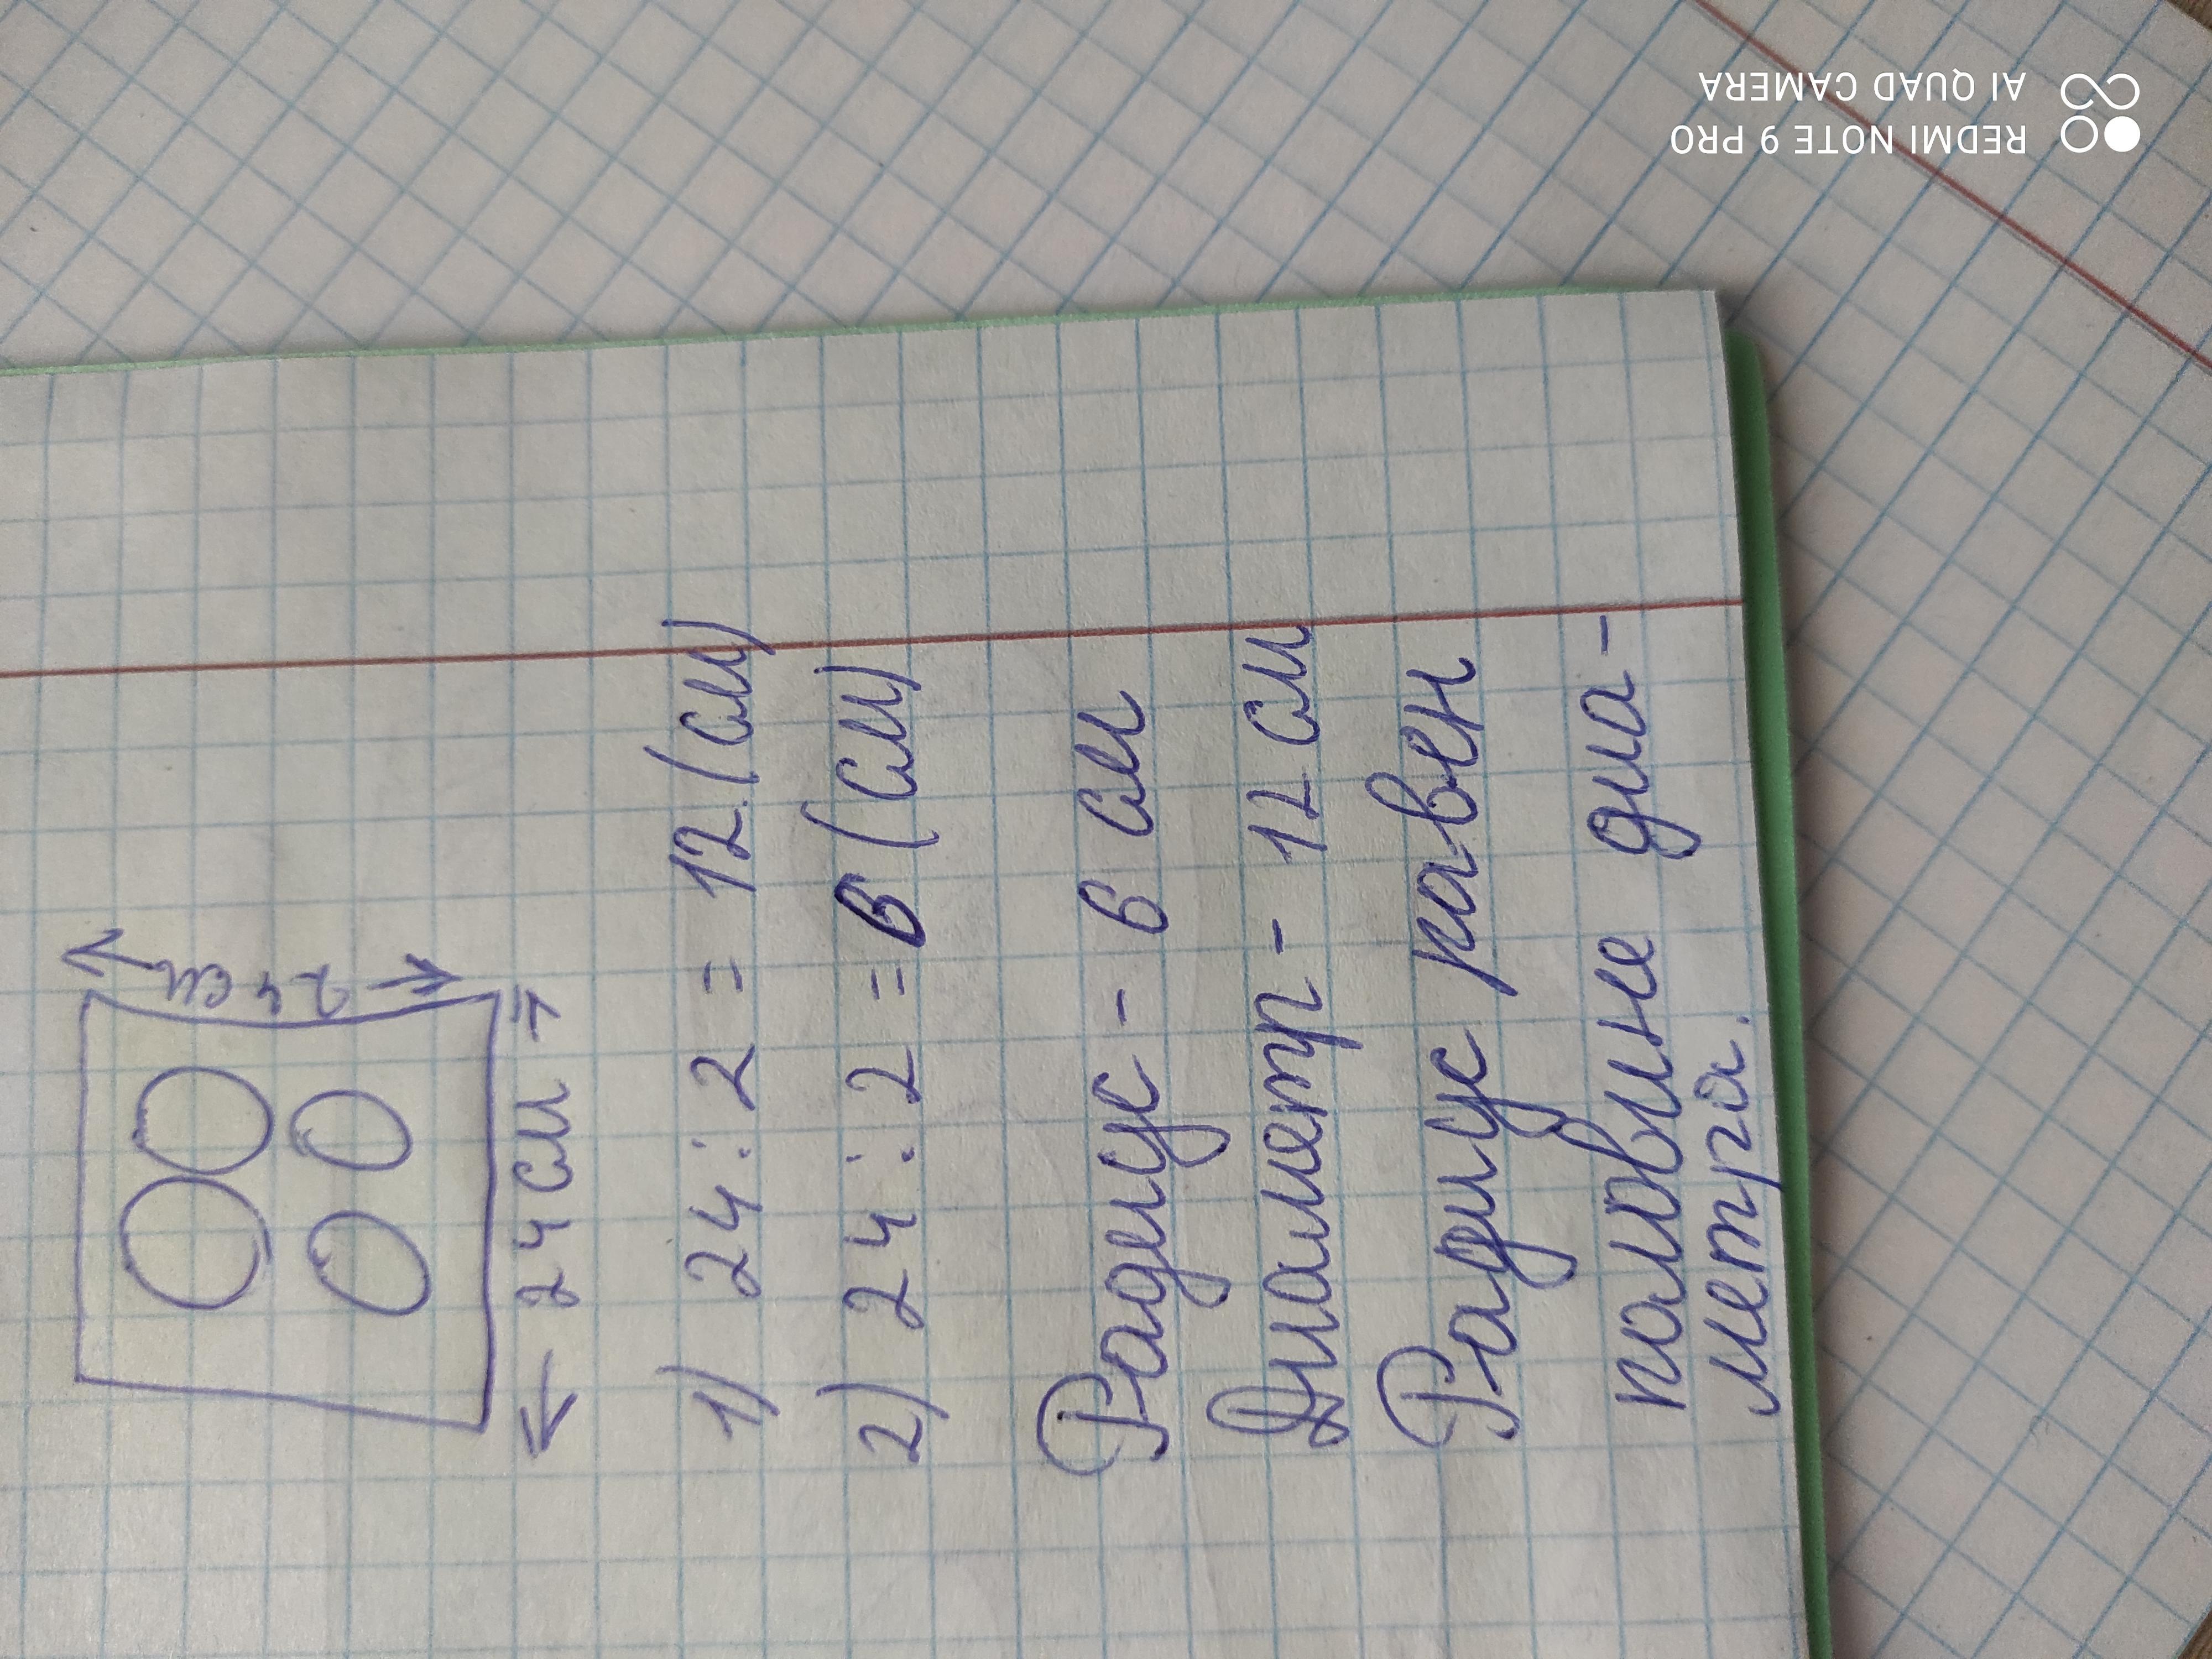 24 см
← 24 см →
1) 24 : 2 = 12 (см)
2) 24 : 2 = 6 (см)
Радиус - 6 см
Диаметр - 12 см
Радиус равен
половине диа-
метра.
REDMI NOTE 9 PRO
AI QUAD CAMERA